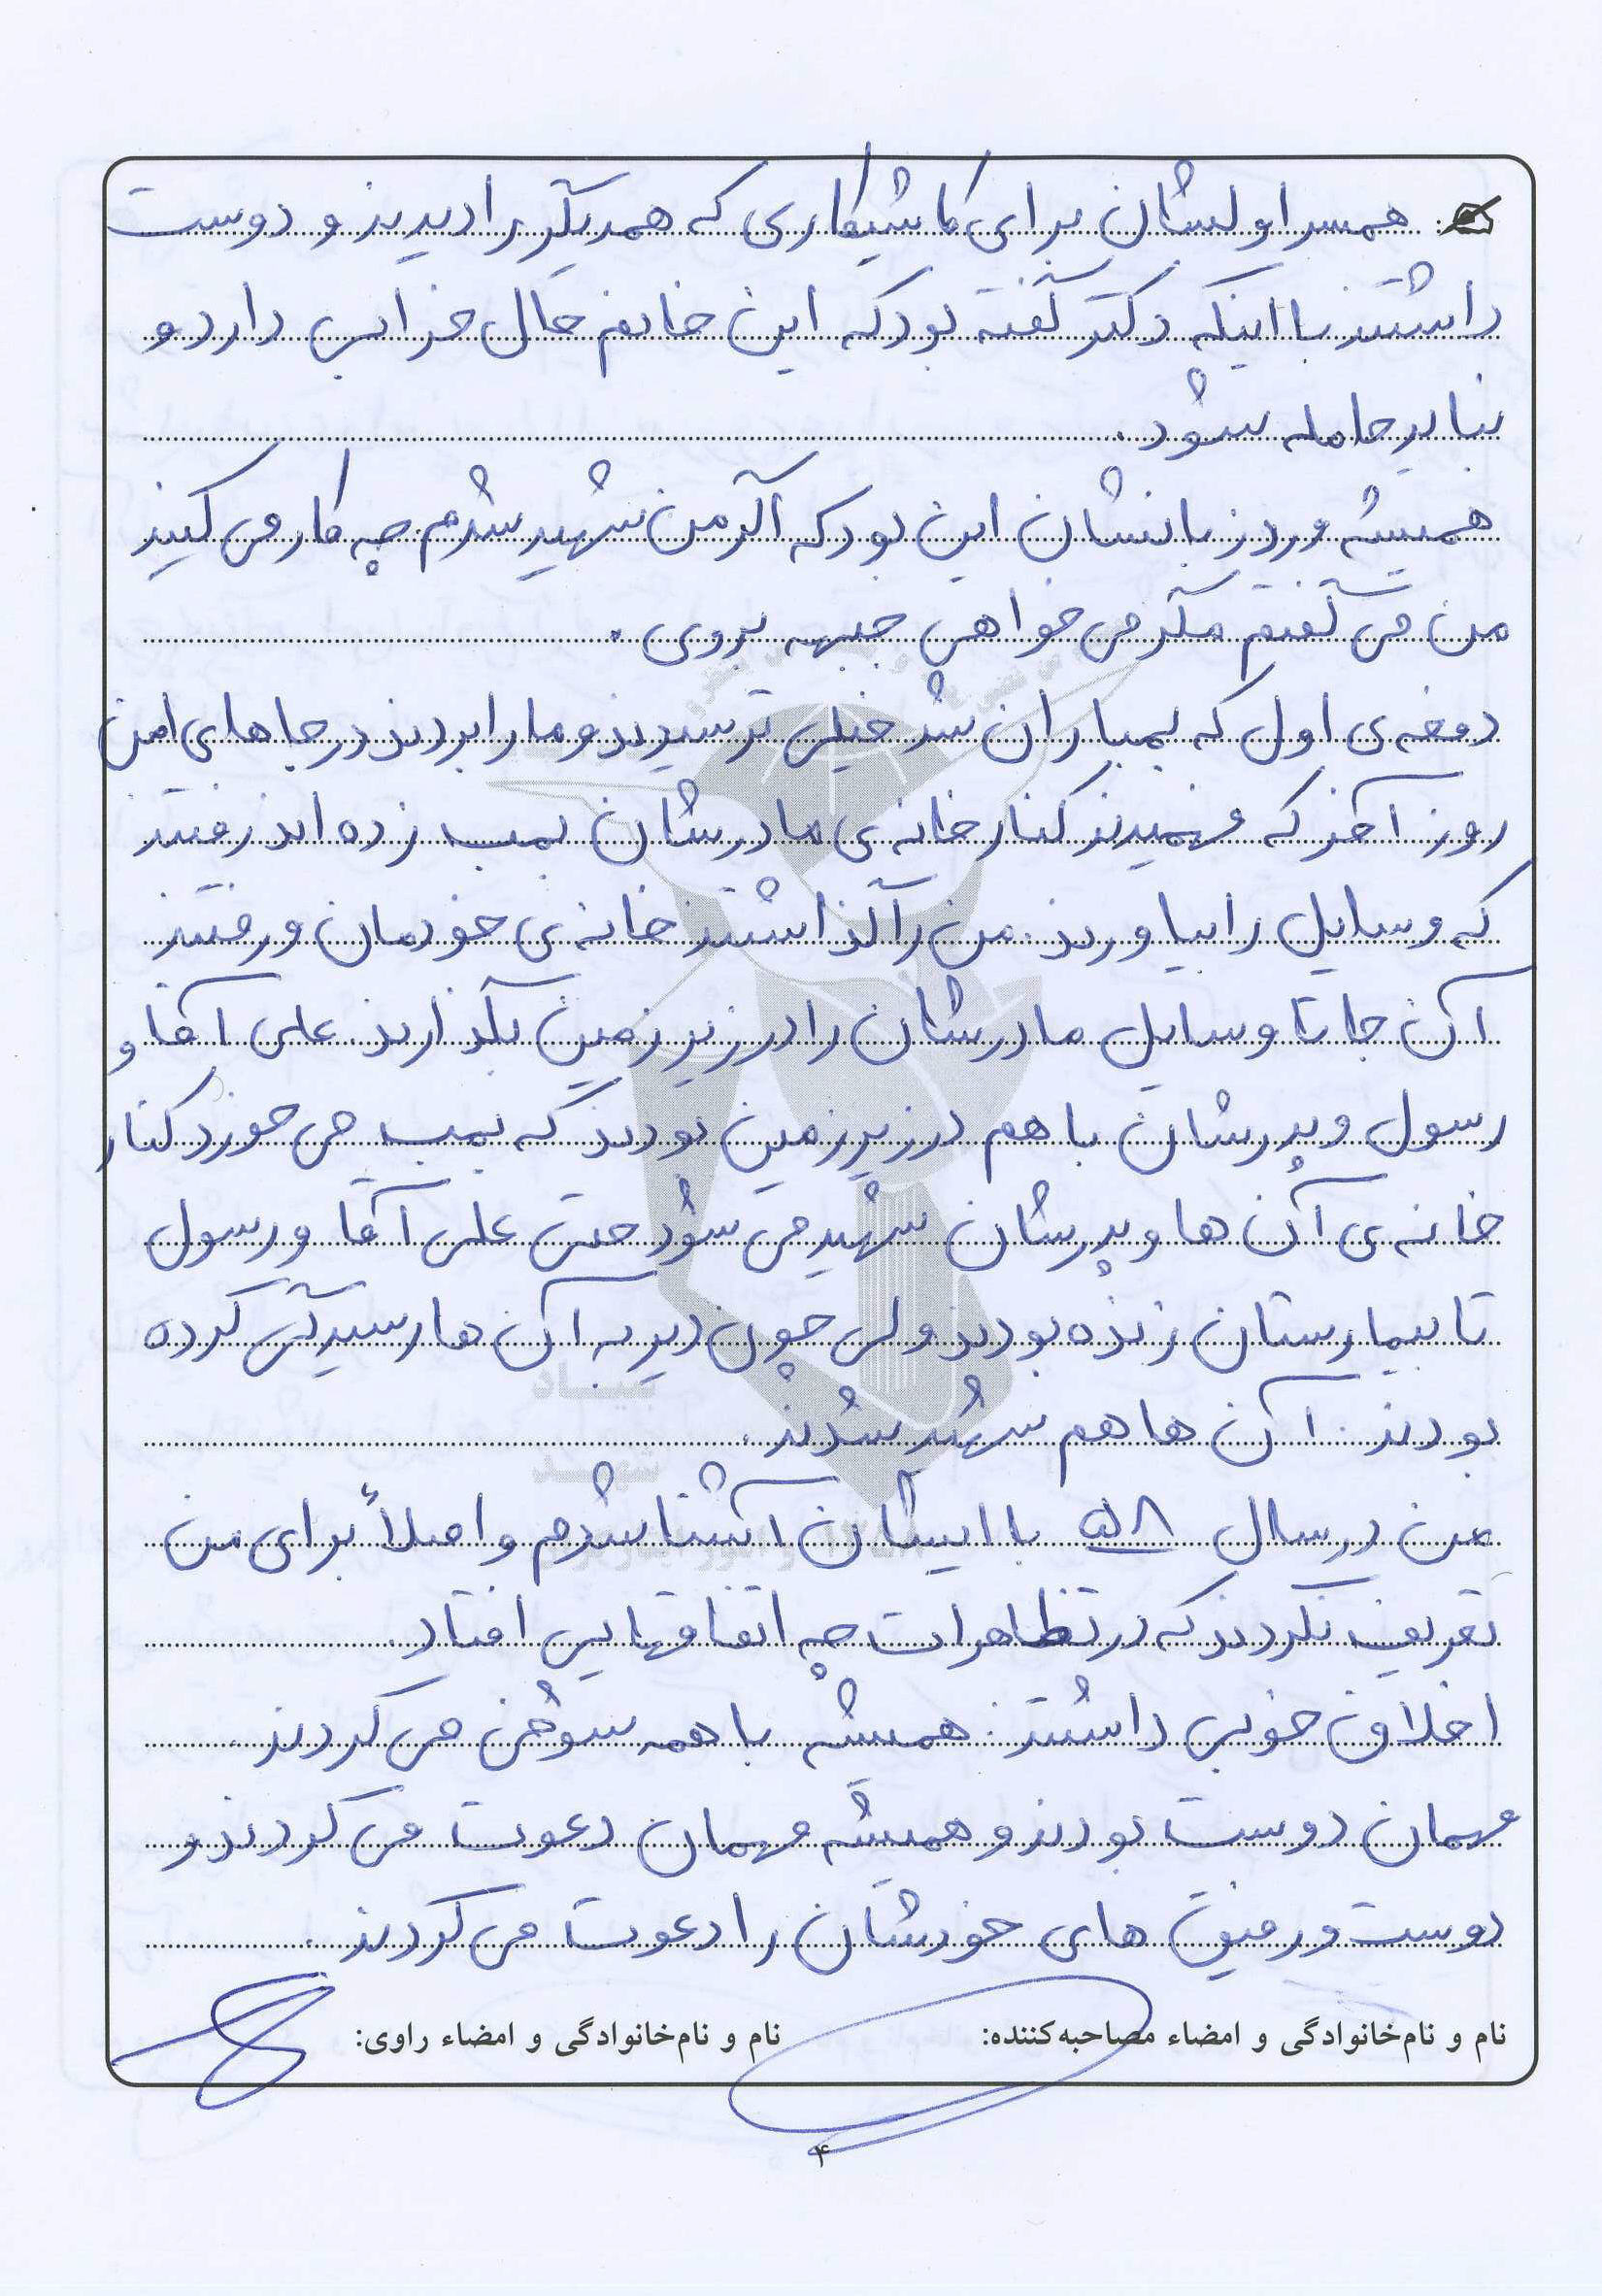 همسر اولشان برای کاشیکاری که همدیگر را دیدند و دوست
داشتند با اینکه دکتر گفته بود که این خانم حال خرابی دارد و
نباید حامله شود.
همیشه ورد زبانشان این بود که اگر من شهید شدم چه کار می کنید
من می گفتم مگر می خواهی جبهه بروی.
دفعه ی اول که بمباران شد خیلی ترسیدند و ما را بردند در جاهای امن
روز آخر که فهمیدند کنار خانه ی مادرشان بمب زده اند رفتند
که وسایل را بیاورند. من را گذاشتند خانه ی خودمان و رفتند
آن جا تا وسایل مادرشان را در زیرزمین بگذارند. علی آقا و
رسول و پدرشان با هم در زیرزمین بودند که بمب می خورد کنار
خانه ی آن ها و پدرشان شهید می شود حتی علی آقا و رسول
تا بیمارستان زنده بودند ولی چون دیر به آن ها رسیدگی کرده
بودند. آن ها هم شهید شدند.
من در سال ۵۸ با ایشان آشنا شدم و اصلاً برای من
تعریف نکردند که در تظاهرات چه اتفاقهایی افتاد.
اخلاق خوبی داشتند. همیشه با همه شوخی می کردند.
مهمان دوست بودند و همیشه مهمان دعوت می کردند و
دوست و رفیق های خودشان را دعوت می کردند.
نام و نام‌خانوادگی و امضاء مصاحبه‌کننده: نام و نام‌خانوادگی و امضاء راوی:
۴